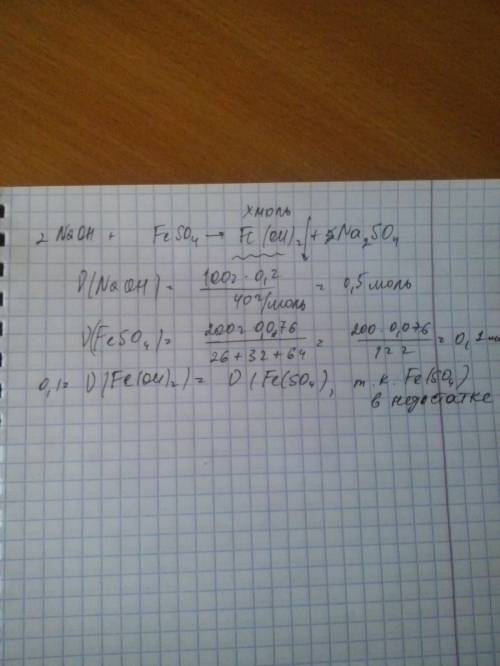 х моль
2 NaOH + FeSO₄ → Fe(OH)₂↓ + Na₂SO₄
ν(NaOH) = 100г · 0,2 / 40 г/моль = 0,5 моль
ν(FeSO₄) = 200г · 0,076 / 26 + 32 + 64 = 200 · 0,076 / 122 = 0,1
0,1 = ν(Fe(OH)₂) = ν(Fe(SO₄), т.к. Fe(SO₄)
в недостатке